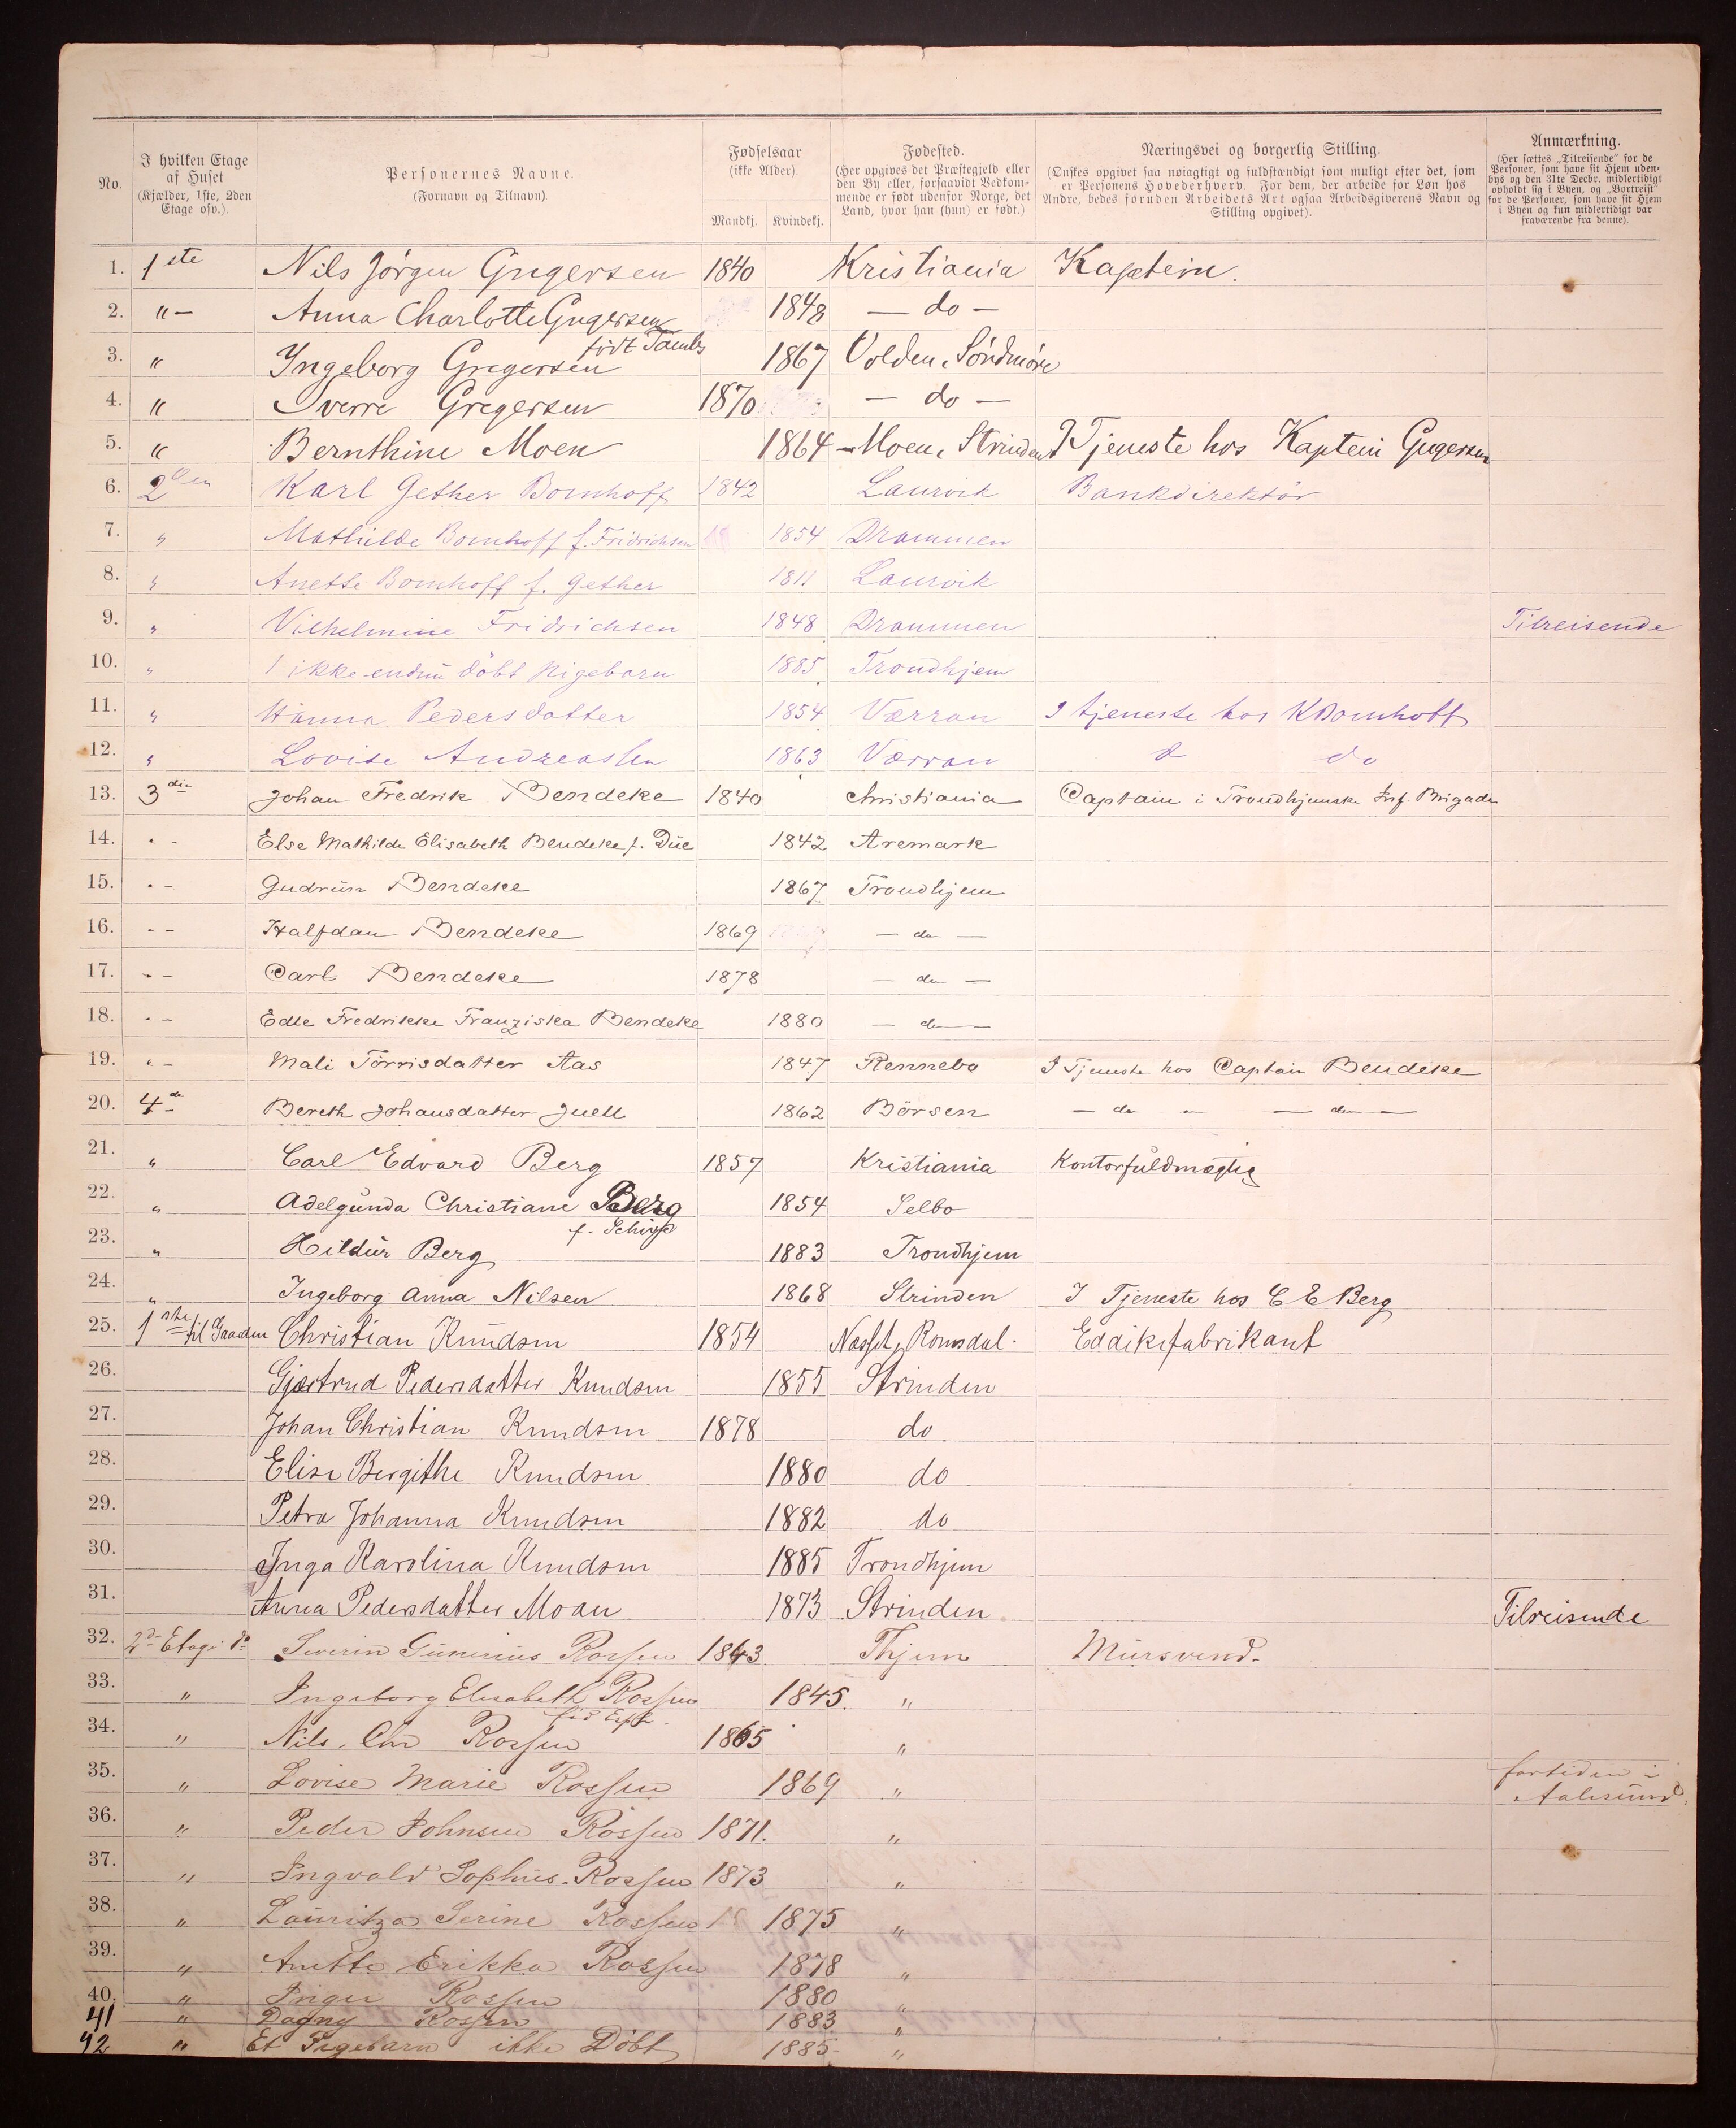 No.
I hvilken Etage af Huset (Kjælder, 1ste, 2den Etage osv.).
Personernes Navne. (Fornavn og Tilnavn).
Fødselsaar (ikke Alder) Mandkj. Kvindekj.
Fødested. (Her opgives det Præstegjeld eller den By eller, forsaavidt Vedkommende er født udenfor Norge, det Land, hvor han (hun) er født.)
Næringsvei og borgerlig Stilling. (Ønskes opgivet saa nøiagtigt og fuldstændigt som muligt efter det, som er Personens Hovederhverv. For dem, der arbeide for Løn hos Andre, bedes foruden Arbeidets Art ogsaa Arbeidsgiverens Navn og Stilling opgivet).
Anmærkning. (Her sættes „Tilreisende“ for de Personer, som have sit Hjem udenbys og den 31te Decbr. midlertidigt opholdt sig i Byen, og „Bortreist“ for de Personer, som have sit Hjem i Byen og kun midlertidigt var fraværende fra denne).
1. 1ste Nils Jörgen Gregersen 1840 Kristiania Kaptein.
2. " – Anna Charlotte Gregersen 1848 — do —
födt Tambs
3. " Ingeborg Gregersen 1867 Volden, Söndmöre
4. " Sverre Gregersen 1870 — do —
5. " Bernthine Moen 1864 Moen, Strinden I Tjeneste hos Kaptein Gregersen
6. 2den Karl Gether Bomhoff 1842 Laurvik Bankdirektör
7. " Mathilde Bomhoff f. Fridrichsen 1854 Drammen
8. " Anette Bomhoff f. Gether 1811 Laurvik
9. " Vilhelmine Fridrichsen 1848 Drammen Tilreisende
10. " 1 ikke endnu döbt Pigebarn 1885 Trondhjem
11. " Hanna Pedersdatter 1854 Værran I tjeneste hos K Bomhoff
12. " Lovise Andreassen 1863 Værran do
13. 3die Johan Fredrik Bendeke 1840 Christiania Captain i Trondhjemske Inf. Brigade
14. " – Else Mathilde Elisabeth Bendeke f. Düe 1842 Aremark
15. " – Gudrün Bendeke 1867 Trondhjem
16. " – Halfdan Bendeke 1869 — do —
17. " – Carl Bendeke 1878 — do —
18. " – Edle Fredrikke Franziska Bendeke 1880 — do —
19. " – Mali Törrisdatter Aas 1847 Rennebo I Tjeneste hos Captain Bendeke
20. 4de Bereth Johansdatter Juell 1862 Börsen — do — — do —
21. " Carl Edvard Berg 1857 Kristiania Kontorfuldmægtig
22. " Adelgunda Christiane Berg 1854 Selbo
23. " Hildur Berg 1883 Trondhjem
24. " Ingeborg Anna Nilsen 1868 Strinden I Tjeneste hos C E Berg
25. 1ste til Gaarden Christian Knudsen 1854 Næsset, Romsdal. Eddikefabrikant
26. Gjertrud Pedersdatter Knudsen 1855 Strinden
27. Johan Christian Knudsen 1878 do
28. Elise Bergithe Knudsen 1880 do
29. Petra Johanna Knudsen 1882 do
30. Inga Karolina Knudsen 1885 Trondhjem
31. Anna Pedersdatter Moan 1873 Strinden Tilreisende
32. 2d Etage do Severin Gunerius Rossen 1843 Thjem Mursvend.
33. " Ingeborg Elisabeth Rossen 1845. "
34. " Nils. Chr Rossen 1865 "
35. " Lovise Marie Rossen 1869 " fortiden i Aalesund.
36. " Peder Johnsen Rossen 1871. "
37. " Ingvald Sophus. Rossen 1873 "
38. " Lauritza Serine Rossen 1875 "
39. " Anette Erikka Rossen 1878 "
40. " Inger Rossen 1880 "
41 " Dagny Rossen 1883 "
42 " Et Pigebarn ikke Döbt 1885 "